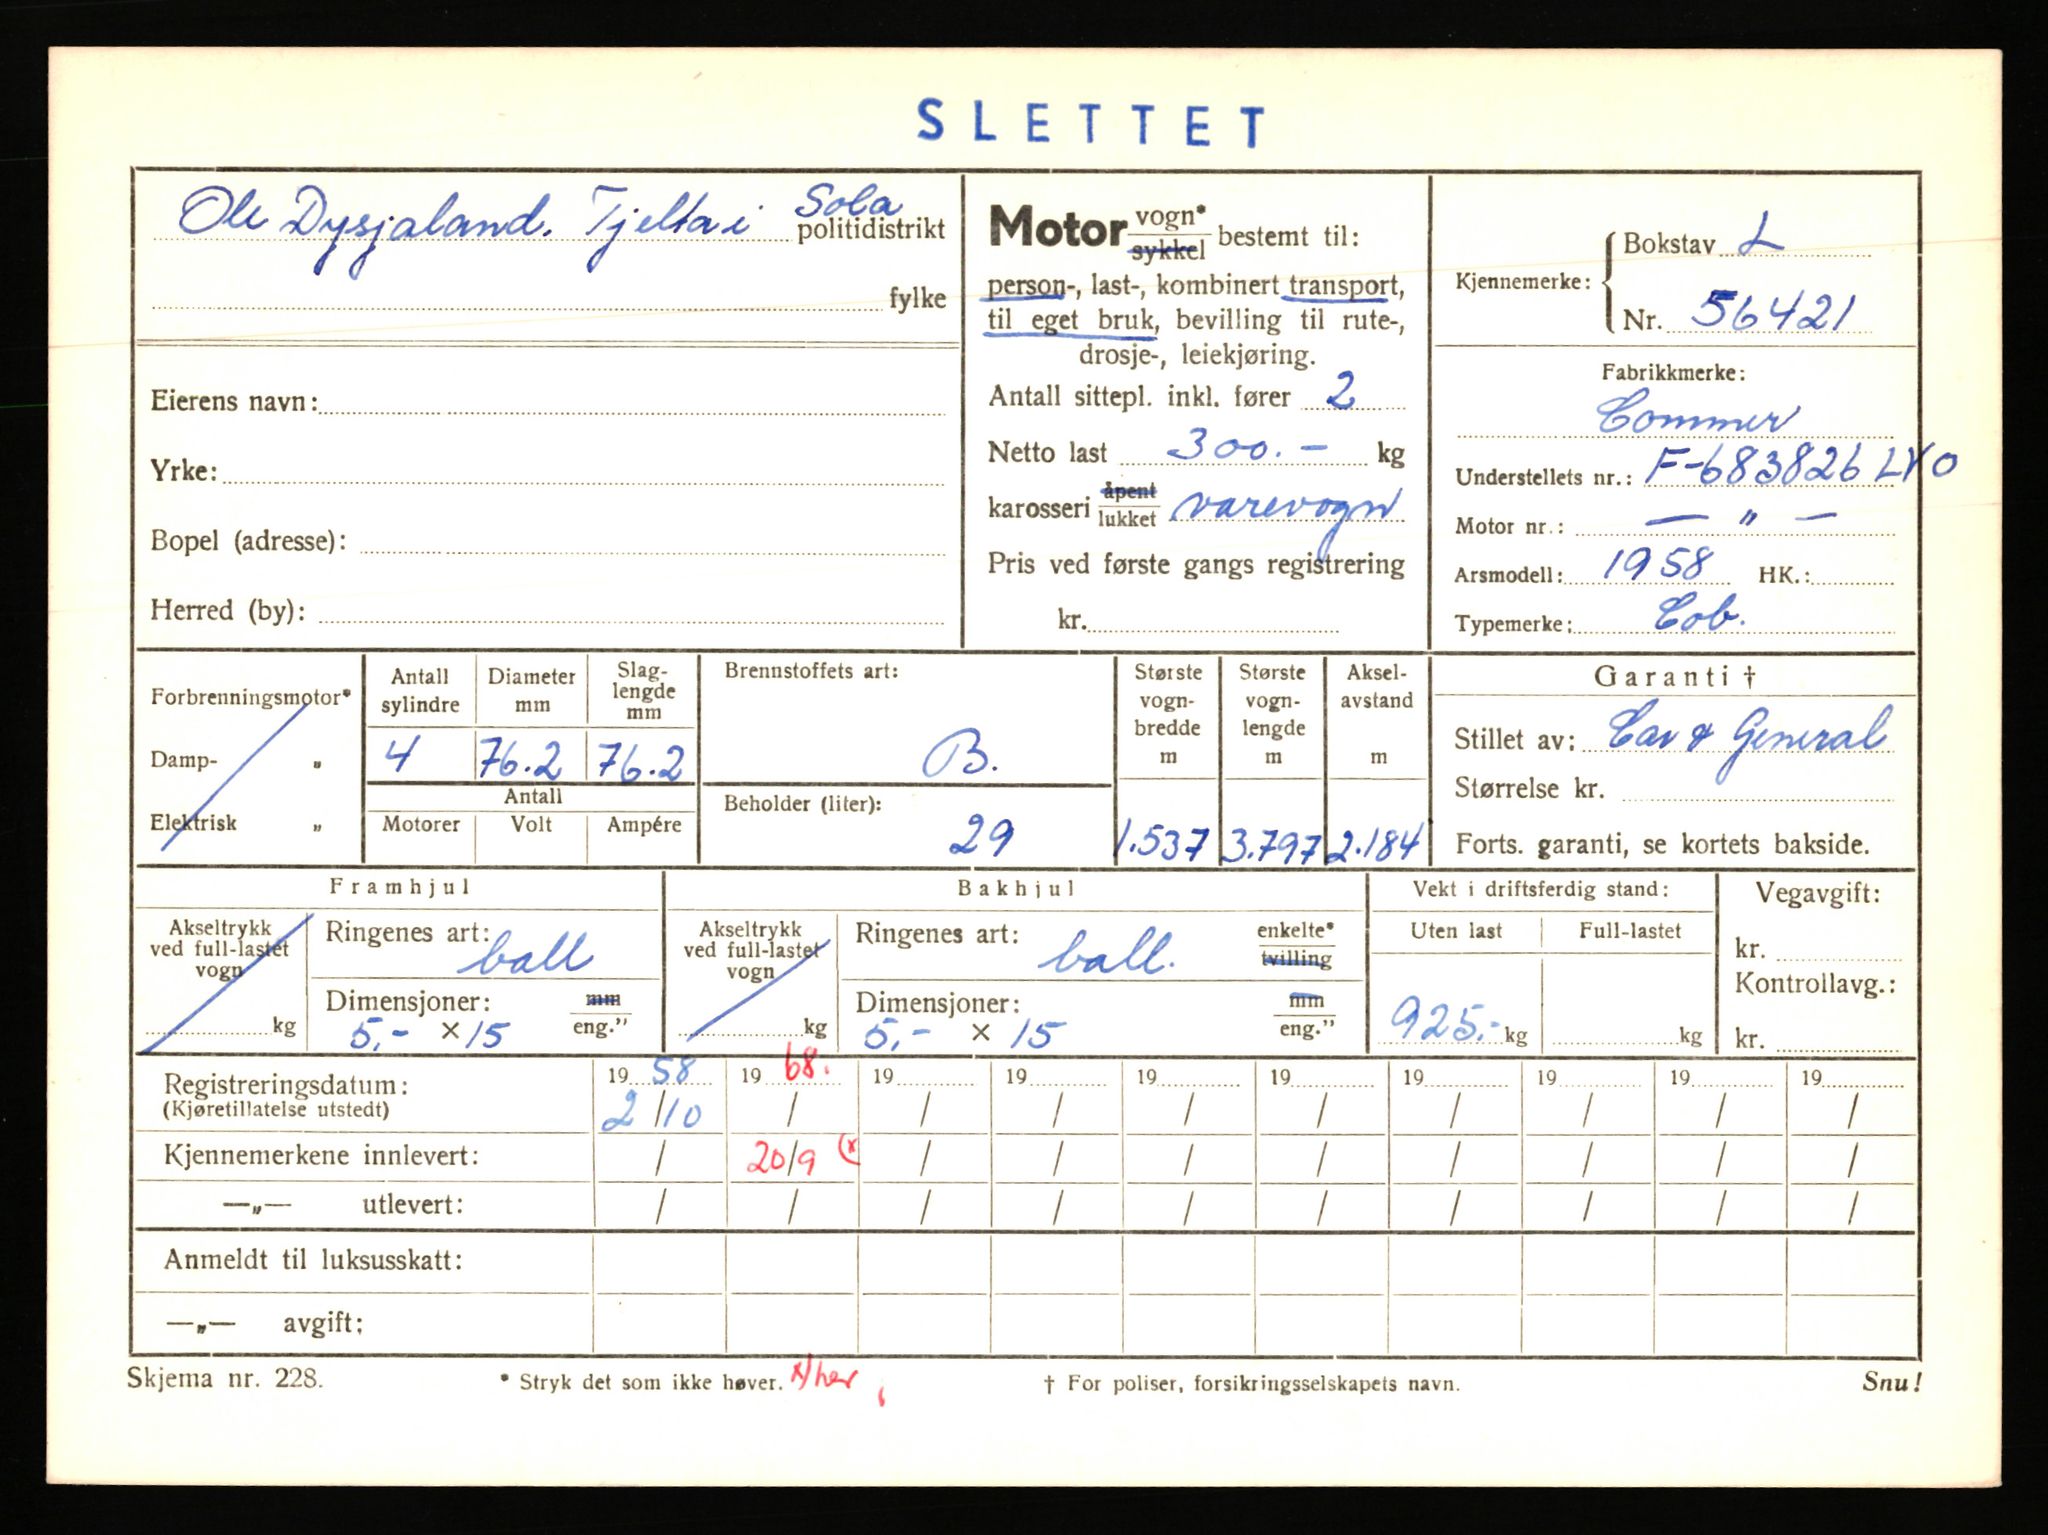 SLETTET
Ole Dysjaland. Tjelta i Sola politidistrikt
fylke
Eierens navn:
Yrke:
Bopel (adresse):
Herred (by):
Motor vogn* sykkel bestemt til:
person-, last-, kombinert transport,
til eget bruk, bevilling til rute-,
drosje-, leiekjøring.
Antall sittepl. inkl. fører 2
Netto last 300.- kg
karosseri åpent lukket varevogn
Pris ved første gangs registrering
kr.
Kjennemerke: Bokstav L
Nr. 56421
Fabrikkmerke:
Commer
Understellets nr.: F-683826 LYO
Motor nr.: — „ —
Arsmodell: 1958 HK.:
Typemerke: Cob.
Forbrenningsmotor*
Damp- „
Elektrisk „
Antall sylindre
Diameter mm
Slag-lengde mm
4 76.2 76.2
Antall
Motorer Volt Ampére
Brennstoffets art:
B.
Beholder (liter):
29
Største vogn-bredde m
Største vogn-lengde m
Aksel-avstand m
1.537 3.797 2.184
Garanti †
Stillet av: Car & General
Størrelse kr.
Forts. garanti, se kortets bakside.
Framhjul
Akseltrykk ved full-lastet vogn
kg
Ringenes art: ball
Dimensjoner: mm eng."
5,- × 15
Bakhjul
Akseltrykk ved full-lastet vogn
kg
Ringenes art: ball. enkelte* tvilling
Dimensjoner: mm eng."
5,- × 15
Vekt i driftsferdig stand:
Uten last Full-lastet
925.- kg kg
Vegavgift:
kr.
Kontrollavg.:
kr.
Registreringsdatum: 19 58 19 68. 19 19 19 19 19 19 19 19
(Kjøretillatelse utstedt) 2/10 / / / / / / / / /
Kjennemerkene innlevert: / 20/9 (x / / / / / / / /
—„— utlevert: / / / / / / / / / /
Anmeldt til luksusskatt:
—„— avgift:
Skjema nr. 228. * Stryk det som ikke høver. x/her † For poliser, forsikringsselskapets navn. Snu!